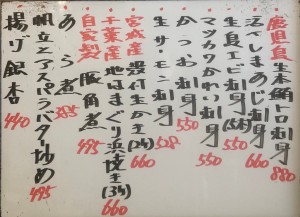 鹿児島生本鮪トロ刺身 880
活〆しまあじ刺身 660
生ボタンエビ刺身(5本) 550
マツカワかれい刺身 550
かつお刺身 550
生サーモン刺身 528
宮城産殻付生かき(2ケ) 660
千葉産地はまぐり浜焼き(3ケ) 660
自家製豚角煮 495
あら煮 385
帆立とアスパラバター炒め 495
揚げ銀杏 440